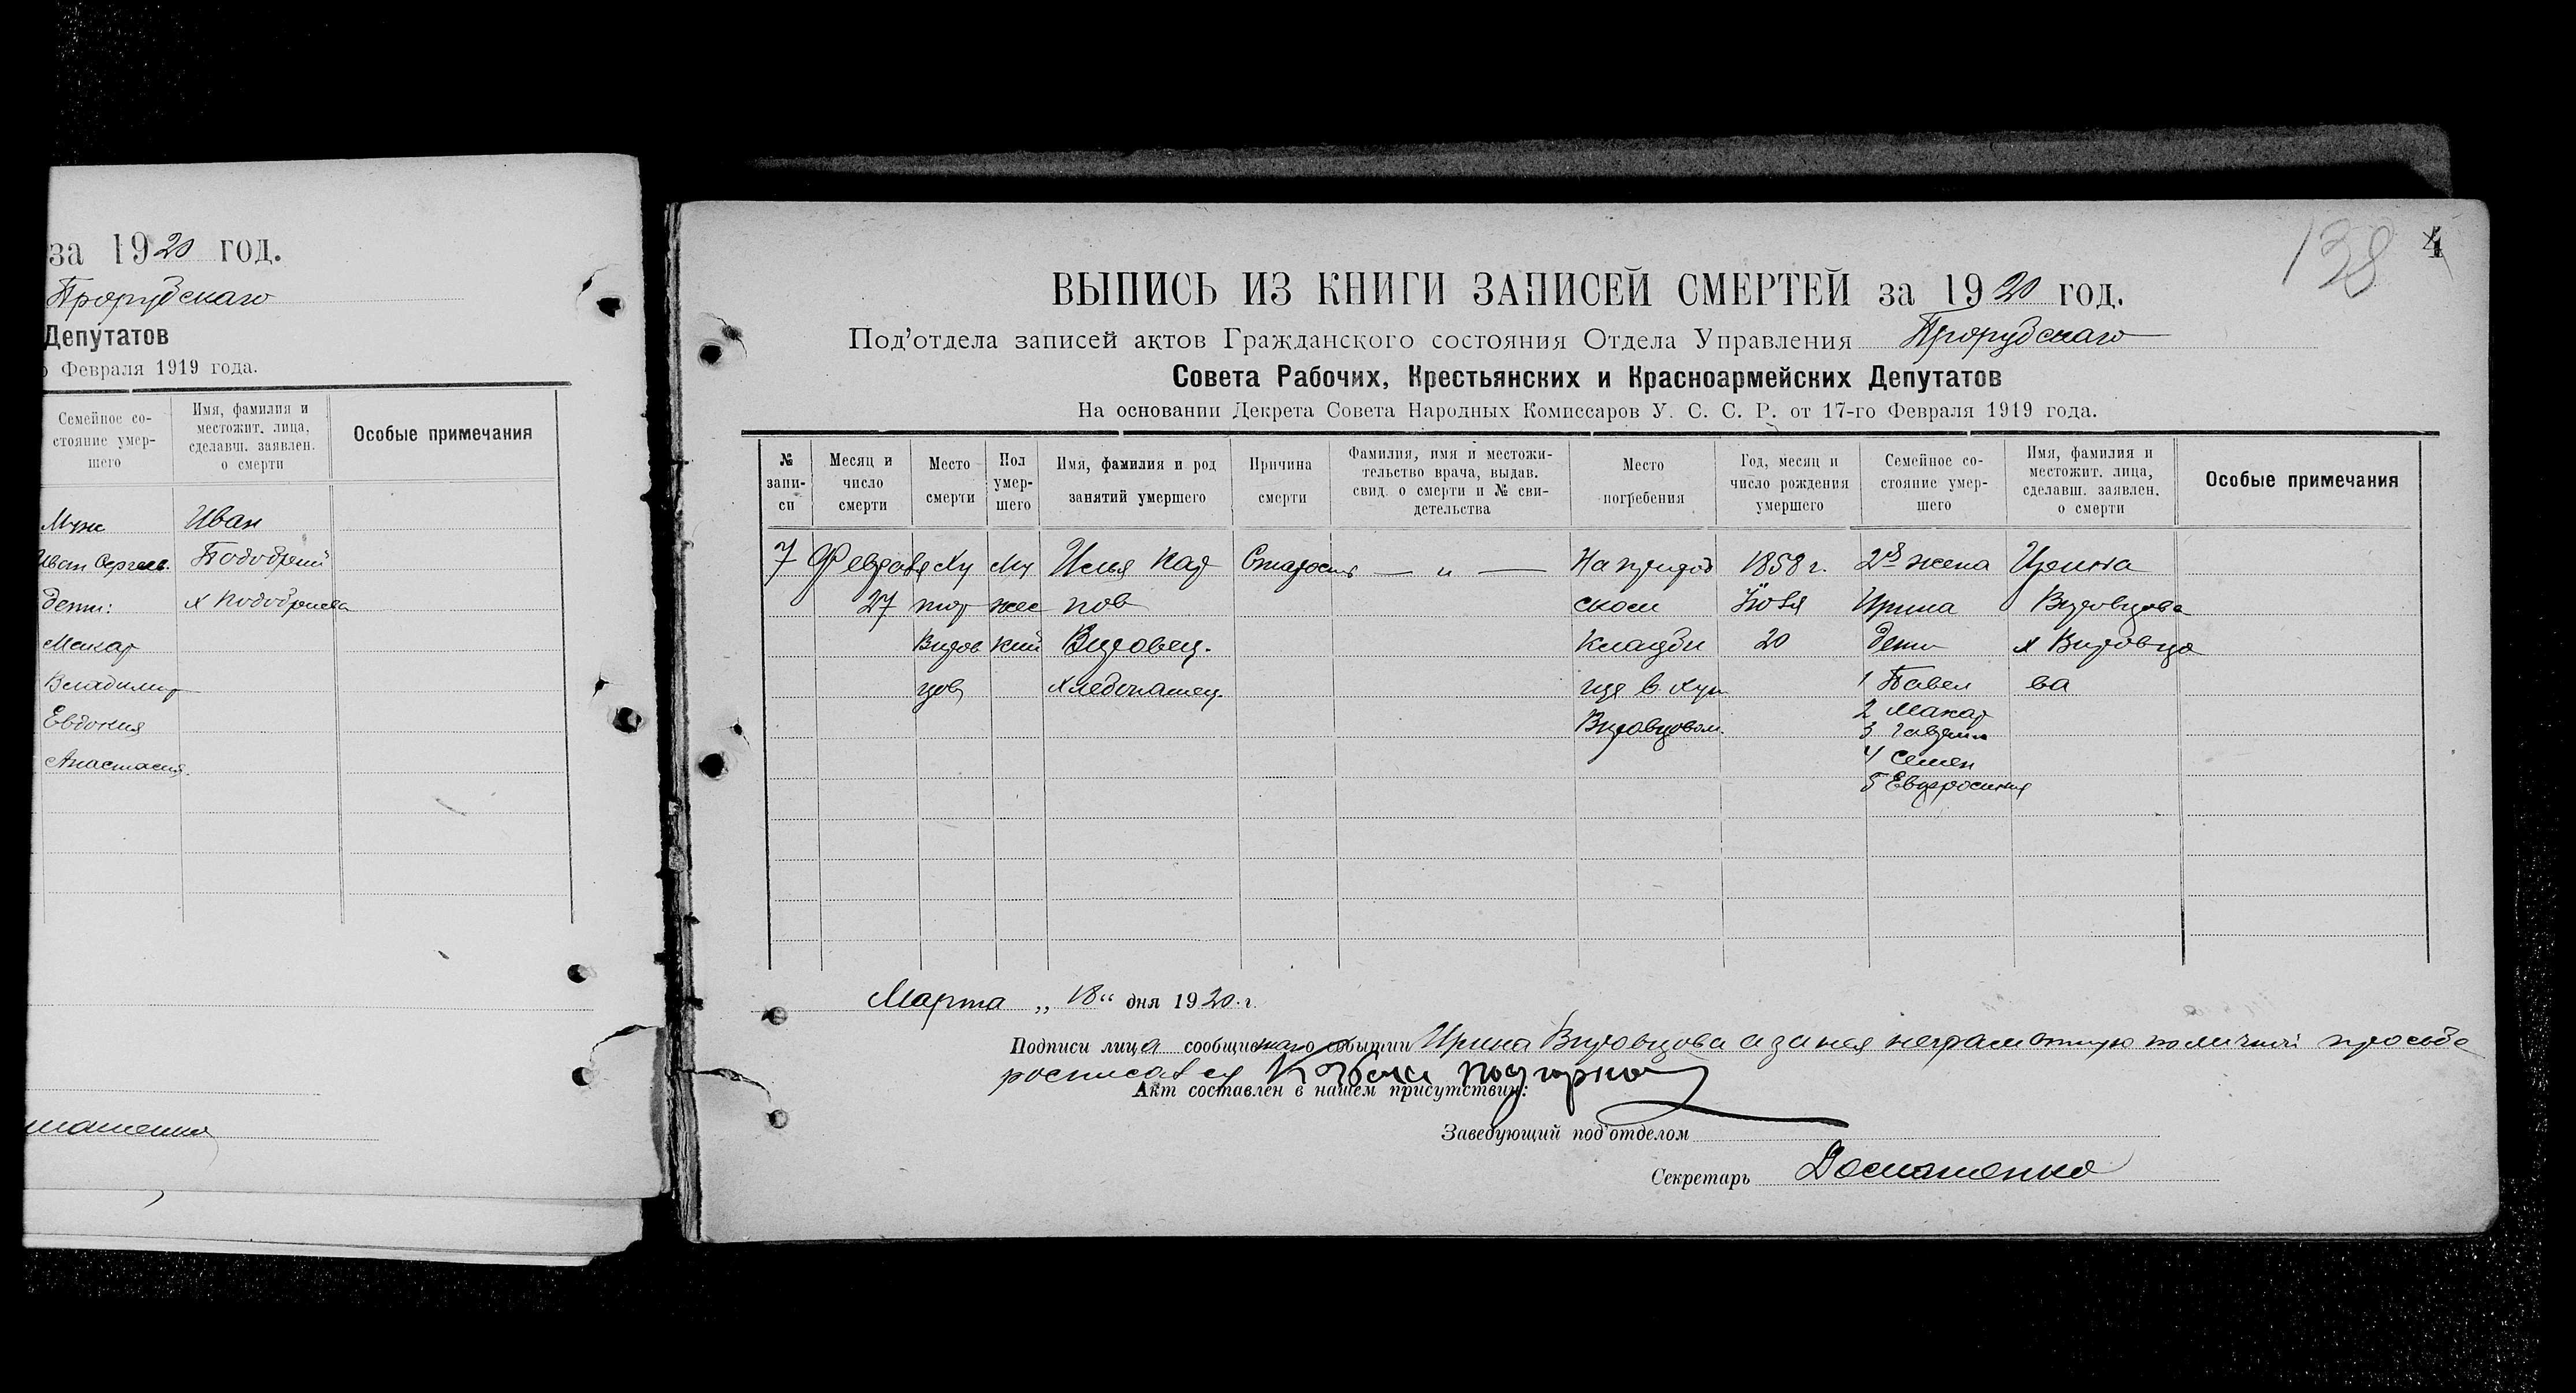 за 1920 год.
Прорубскаго
Депутатов
Февраля 1919 года.
Семейное со-
стояние умер-
шего
Имя, фамилия и
местожит. лица,
сделавш. заявлен.
о смерти
Особые примечания
Муж
Иван
Иван Сергеев.
дети:
Макар
Владимир
Евдокия
Анастасия.
138
4
ВЫПИСЬ ИЗ КНИГИ ЗАПИСЕЙ СМЕРТЕЙ за 1920 год.
Под'отдела записей актов Гражданского состояния Отдела Управления Прорубскаго
Совета Рабочих, Крестьянских и Красноармейских Депутатов
На основании Декрета Совета Народных Комиссаров У. С. С. Р. от 17-го Февраля 1919 года.
№
запи-
си
Месяц и
число
смерти
Место
смерти
Пол
умер-
шего
Имя, фамилия и род
занятий умершего
Причина
смерти
Фамилия, имя и местожи-
тельство врача, выдав.
свид. о смерти и № сви-
детельства
Место
погребения
Год, месяц и
число рождения
умершего
Семейное со-
стояние умер-
шего
Имя, фамилия и
местожит. лица,
сделавш. заявлен.
о смерти
Особые примечания
7
Февраля
27
Ху
тор
Вирев
цов
Му
жес
кий
Илья Кар
пов
Вировец.
хлебопашец.
Старость
— „ —
На приход
ском
кладби
ще в хут.
Вировцовом.
1858 г.
Июля
20
2я жена
Ирина
дети
1 Павел
2 Макар
3 Гавриил
4 Семен
5 Евфросиния
Ирина
Вировцова
х Вировцо
ва
Марта „18“ дня 1920 г.
Подписи лица сообщившаго о событии Ирина Вировцова а за нея неграмотную по личной просьбе
росписался
Акт составлен в нашем присутствии:
Заведующий под'отделом
Секретарь Домашенко